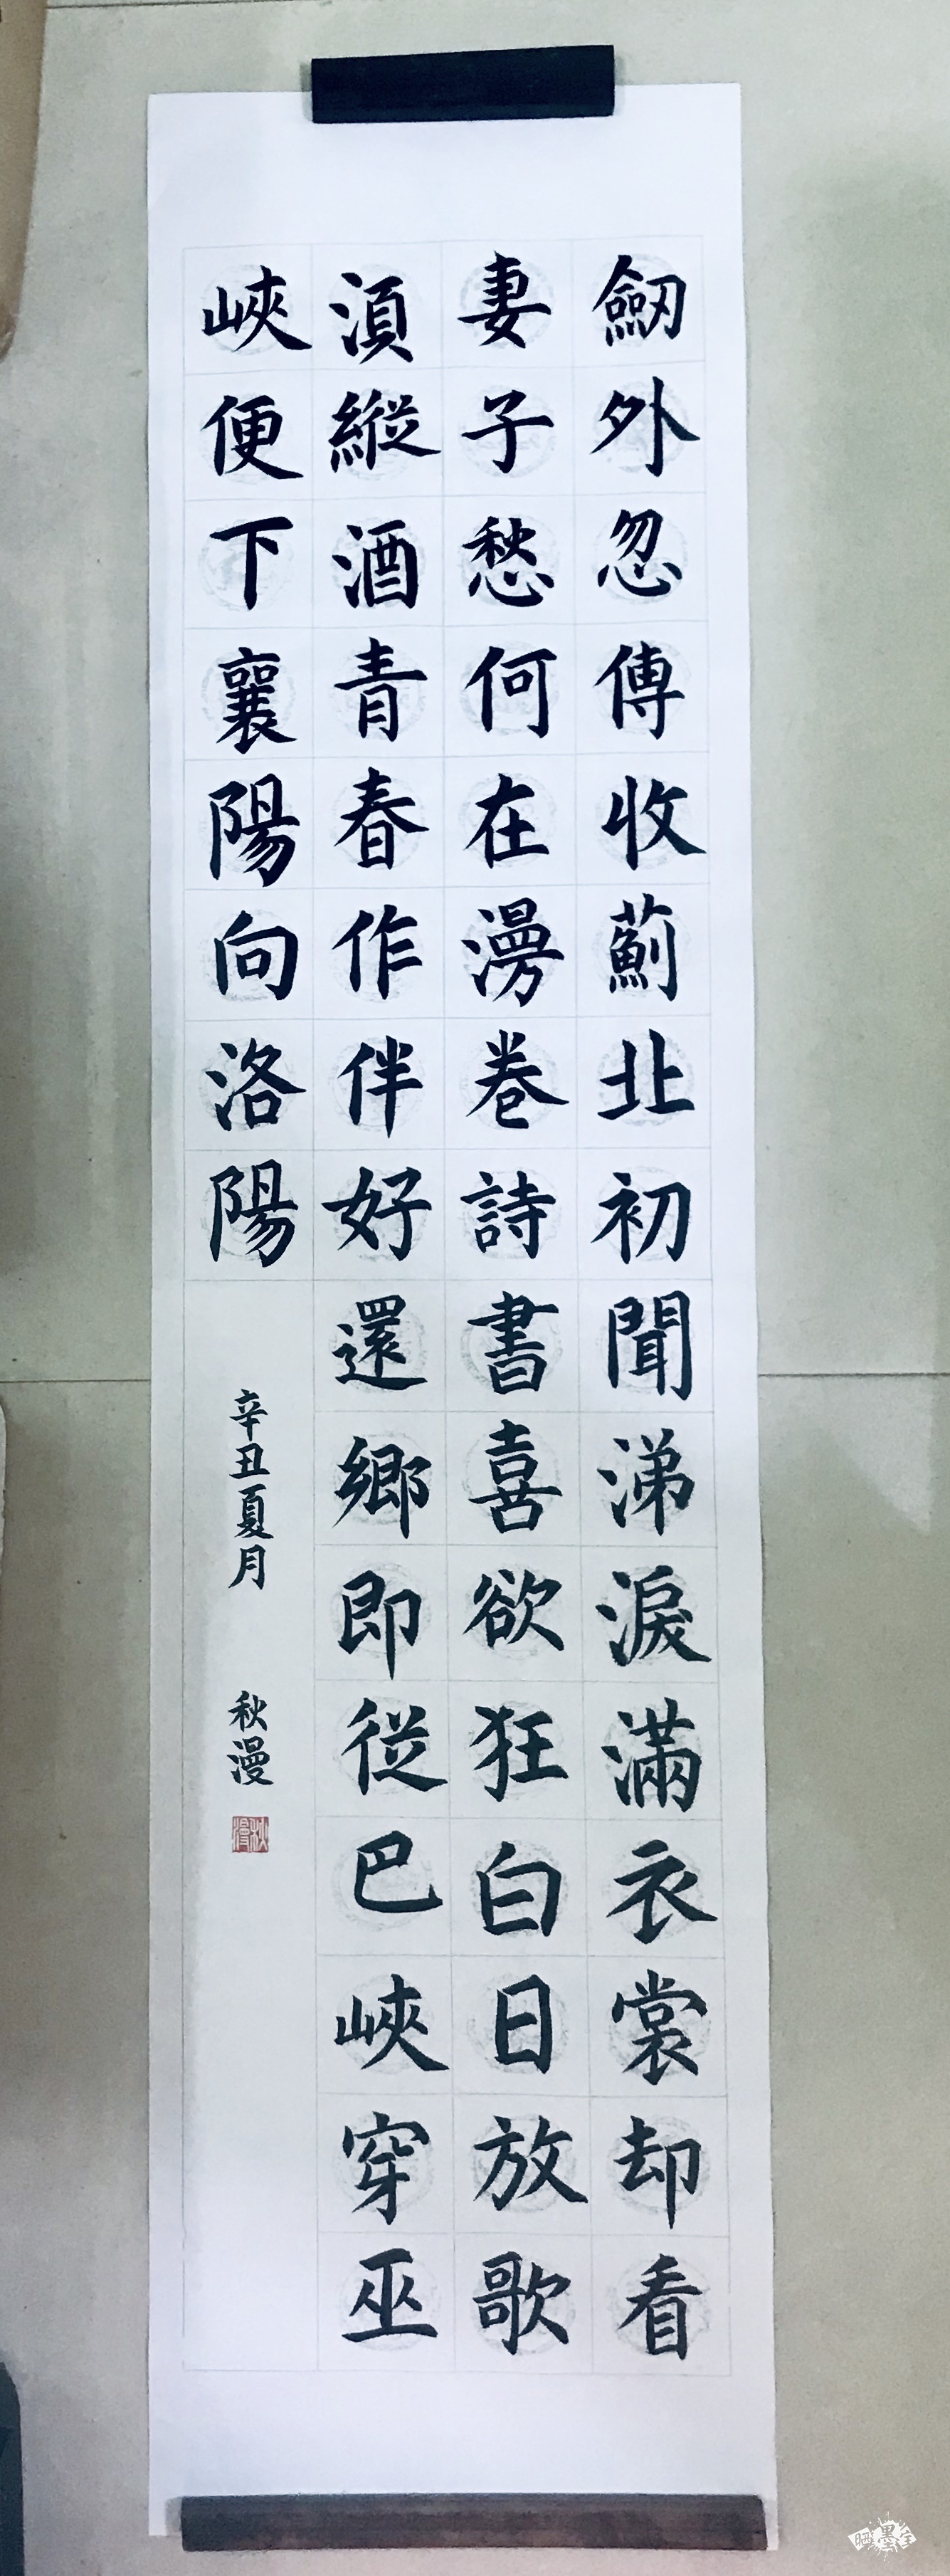 劒外忽傳收薊北初聞涕淚滿衣裳却看
妻子愁何在漫卷詩書喜欲狂白日放歌
湏縱酒青春作伴好還鄉即從巴峽穿巫
峽便下襄陽向洛陽
辛丑夏月 秋漫
秋漫
晒墨宝